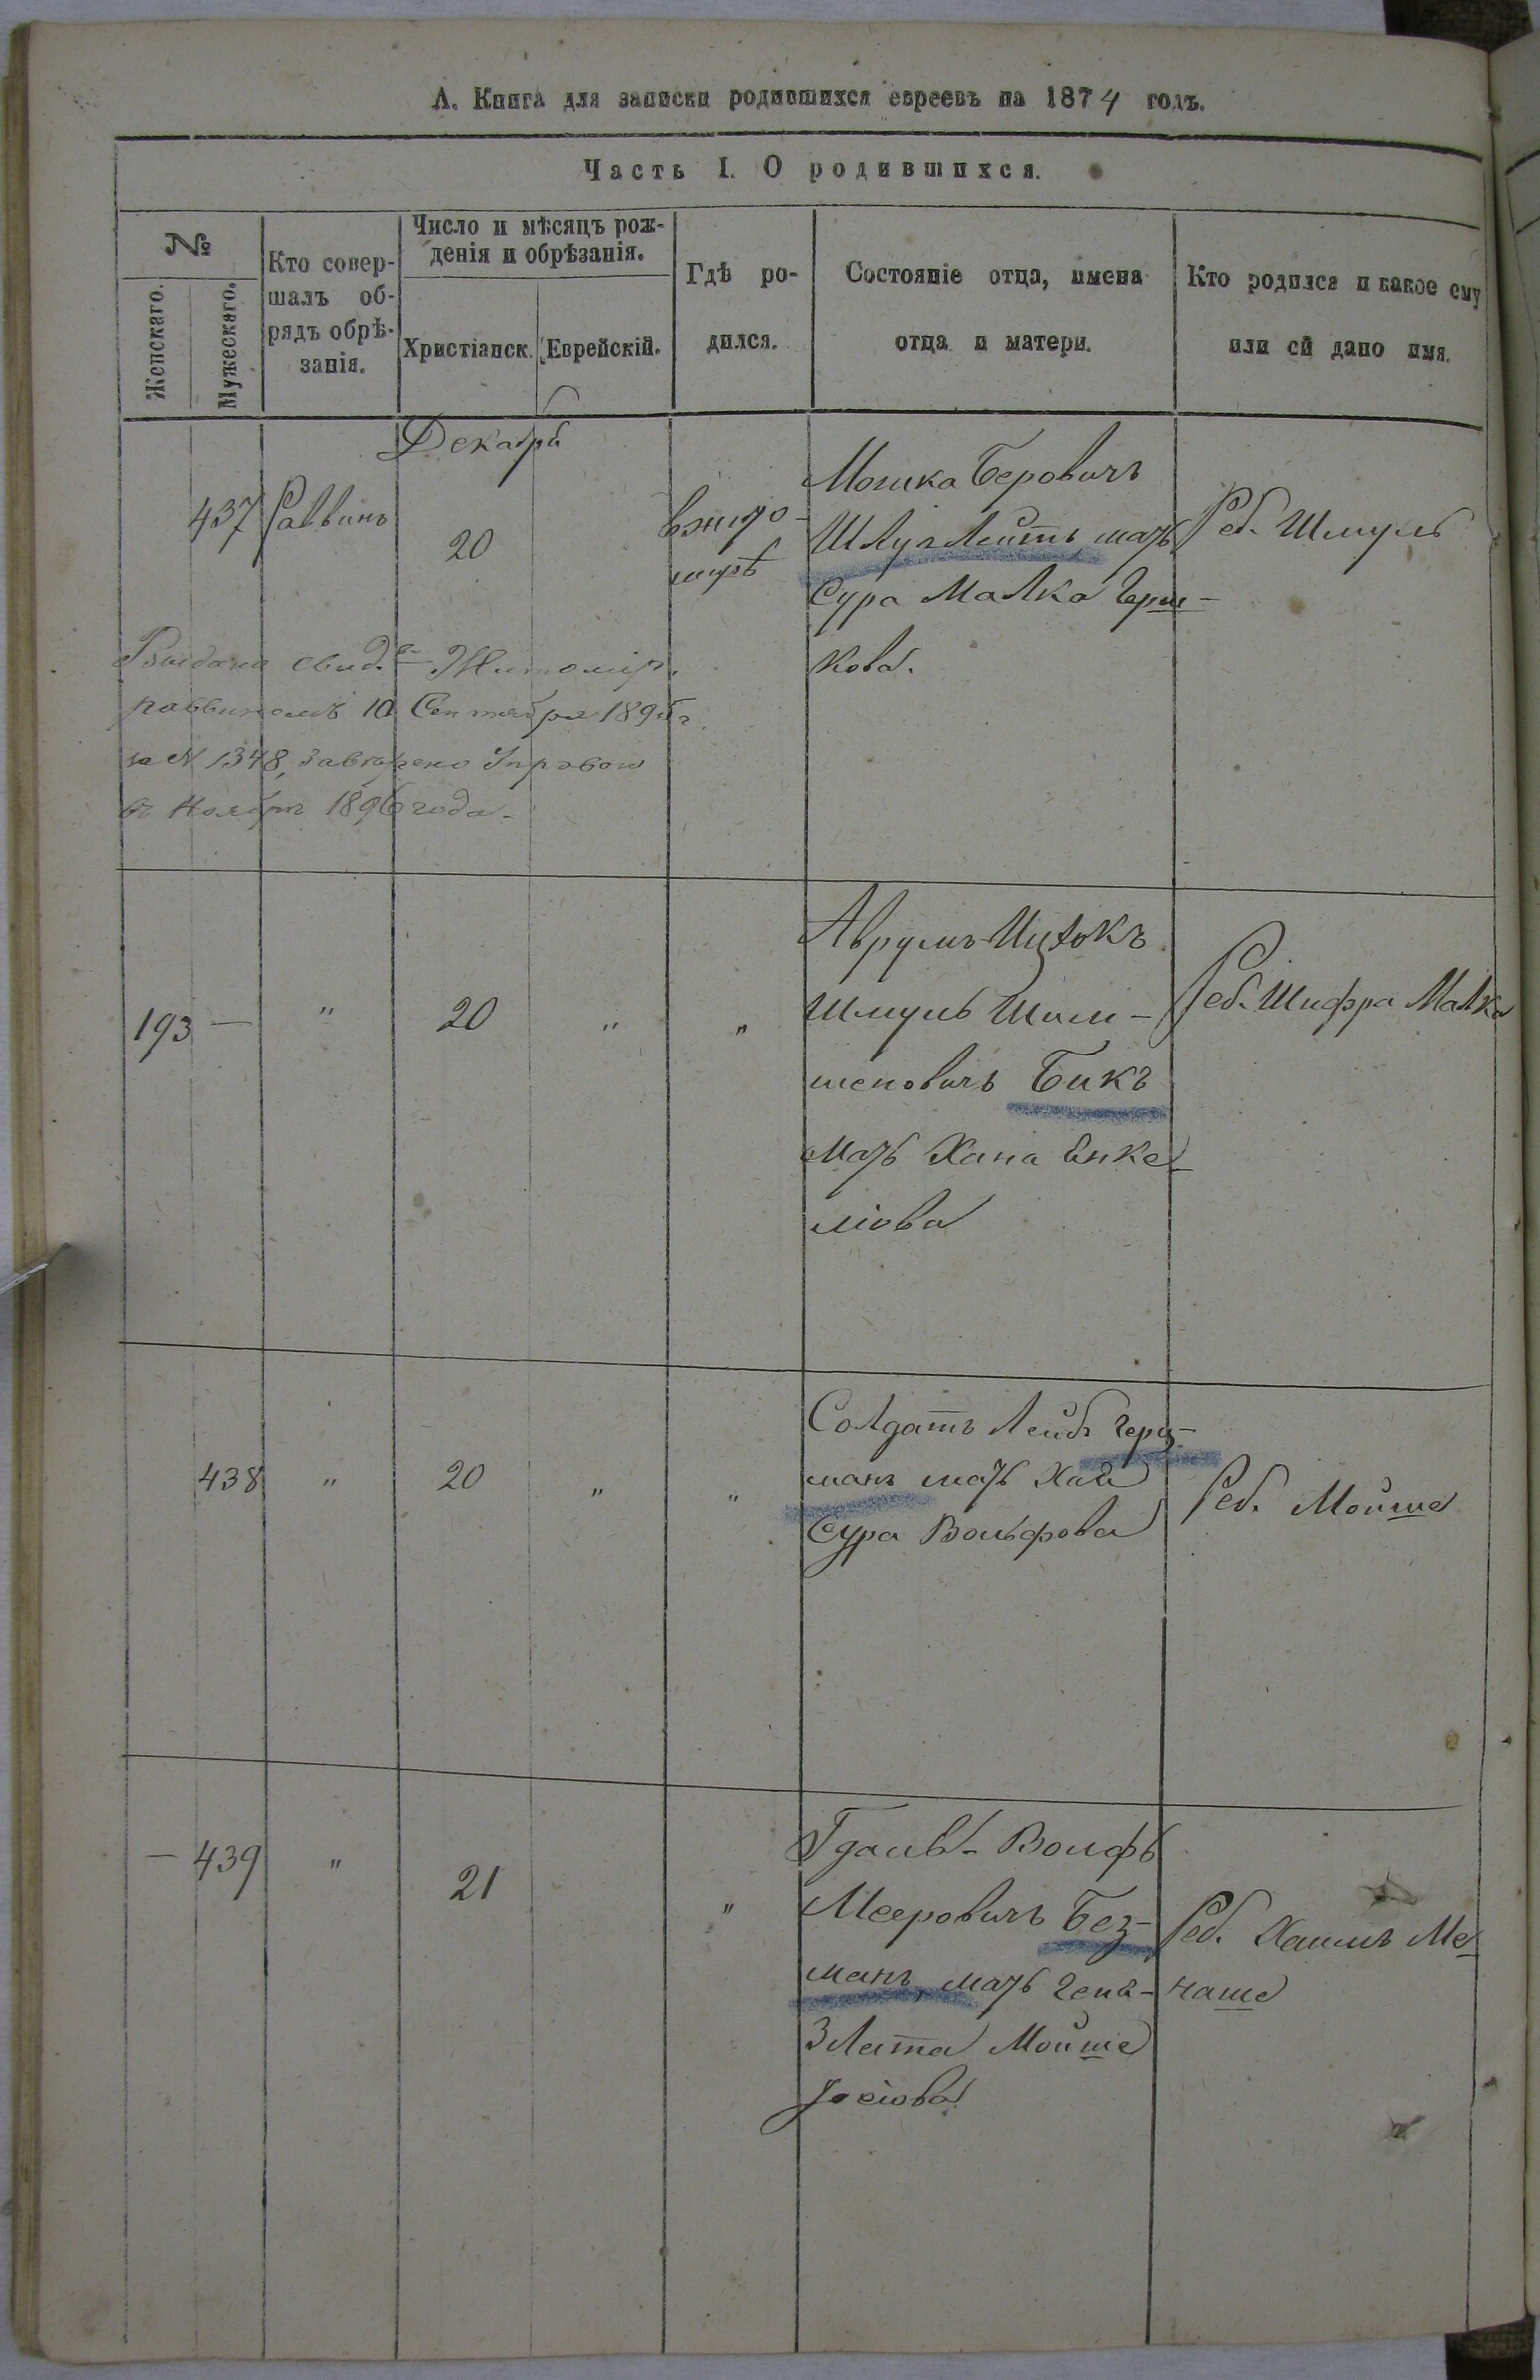 А. Книга для записки родившихся евреевъ на 1874 годъ.
Часть I. О родившихся.
№
Женскаго.
Мужескаго.
Кто совер-
шалъ об-
рядъ обрѣ-
занія.
Число и мѣсяцъ рож-
денія и обрѣзанія.
Христіанск.
Еврейскій.
Гдѣ ро-
дился.
Состояніе отца, имена
отца и матери.
Кто родился и какое ему
или ей дано имя.
Декабрь
437
Раввинъ
20
Вжито-
мирѣ
Мошка Беровичъ
мать
Сура Малка Герш-
кова.
Реб. Шмуль
Выдана свид. Житомір.
раввиномъ 10 Сентября 189
за N 1348, Управою
въ Ноябрѣ 1896 года.
193 —
"
20
"
"
Аврумъ Ицхокъ
Шмуль Шли-
меновичъ Бикъ
мать Хана Енке-
ліова
Реб. Шифра Малка
438
"
20
"
"
Солдатъ Лейб Герц-
манъ мать Хая
Сура Вольфова
Реб. Мойше
— 439
"
21
"
Гдаль-Вольфъ
Мееровичъ Без-
манъ, мать Геня-
Злата Мойше
Іосіова
Реб. Хаимъ Ме-
наше